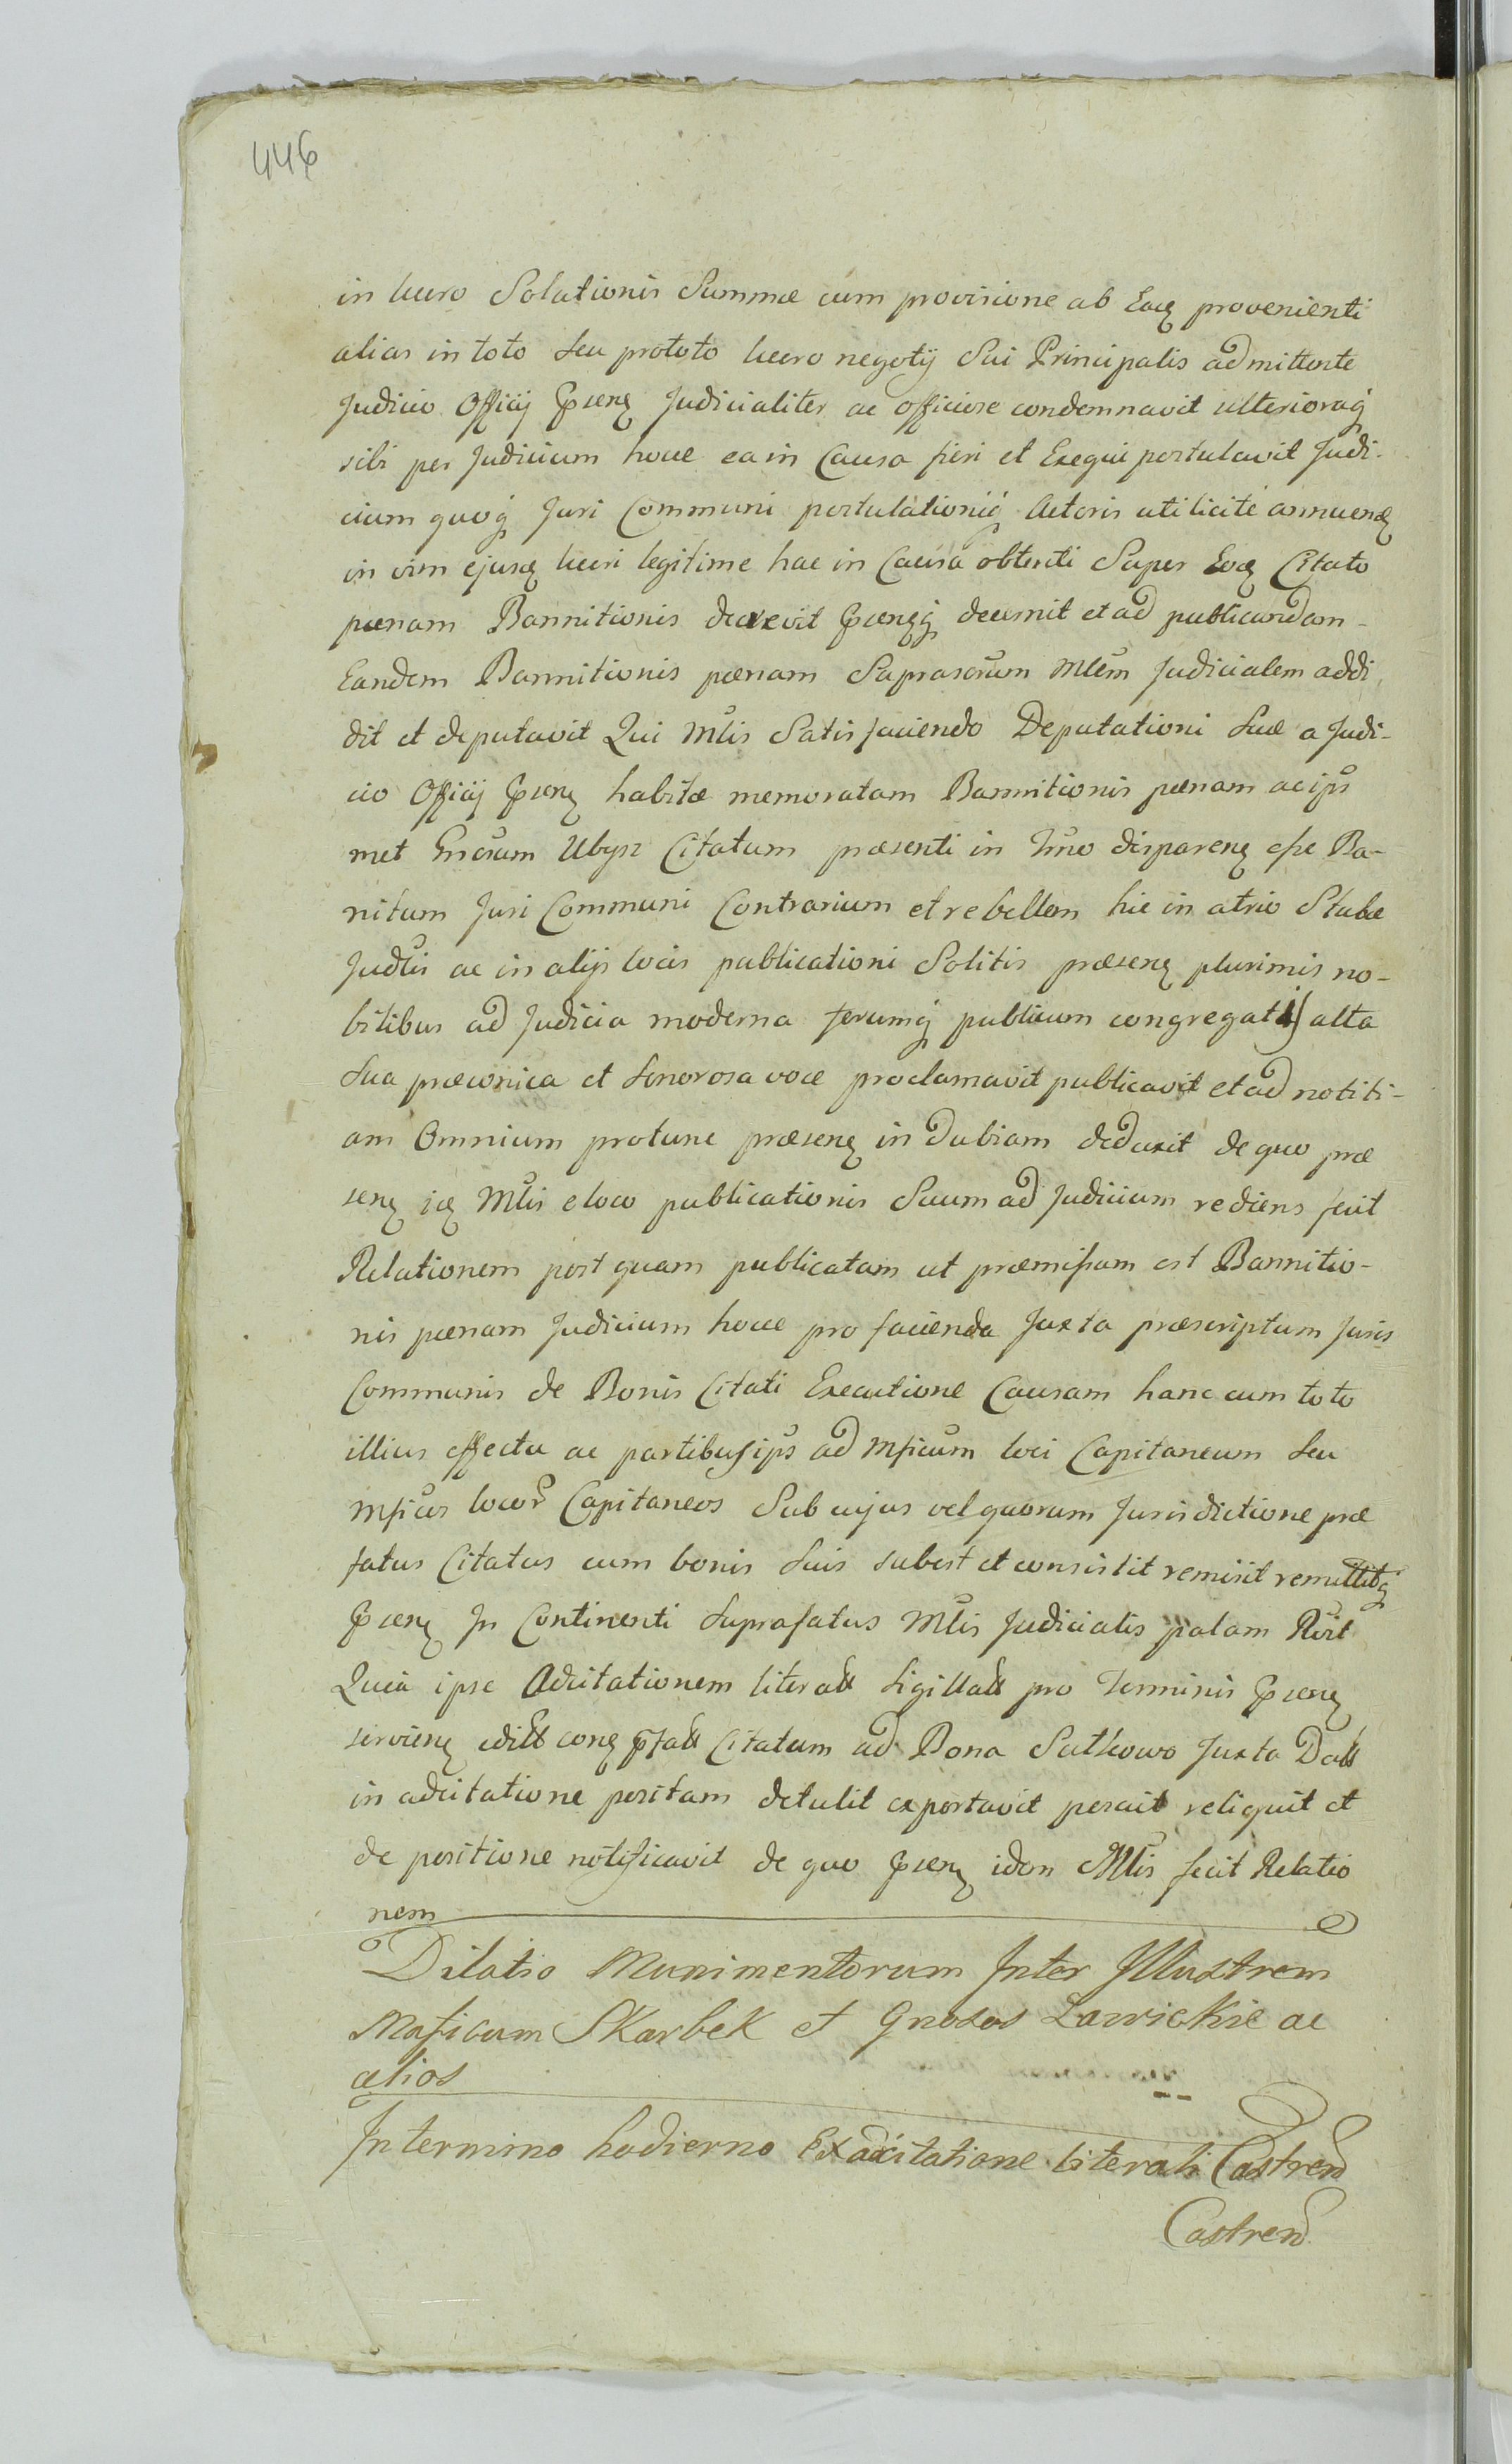 446
in lucro Solutionis Summæ cum provisione ab Eadȩ provenienti
alias in toto seu prototo lucro negotij Sui Principalis admittente
Judicio Officij Pñsenȩ Judicialiter ac officiose condemnavit ulterioraq́
sibi per Judicium hocce ea in Causa fieri et Exequi postulavit Judi-
cium quoq́ Juri Communi postulationiq́ Actoris uti licite annuenȩ
in vim ejusȩ lucri legitime hac in Causa obtenti Super Eoȩ Citato
pœnam Bannitionis decrevit Pñsenȩq́ decernit et ad publicandam
Eandem Bannitionis pœnam Suprascrum Mtem Judicialem addi
dit et deputavit Qui Mtis Satisfaciendo Deputationi Suæ a Judi-
cio Officij Pñsenȩ habitæ memoratam Bannitionis pœnam ac ips
met Gnosum Ubysz Citatum præsenti in Tmno disparenȩ esse Ba-
nitum Juri Communi Contrarium et rebellem hic in atrio Stubæ
Judtis ac in alijs locis publicationi Solitis præsenȩ plurimis no-
bilibus ad Judicia moderna forumq́ publicum congregatis alta
Sua præconica et Sonorosa voce proclamavit publicavit et ad notiti-
am Omnium protunc præsenȩ in dubiam deduxit de quo præ
senȩ iȩ Mtis e loco publicationis Suum ad Judicium rediens fecit
Relationem post quam publicatam ut præmissum est Bannitio-
nis pœnam Judicium hocce pro facienda Juxta præscriptum Juris
Communis de Bonis Citati Executione Causam hanc cum toto
illius effectu ac partibus ips ad Mficum loci Capitaneum Seu
Mficos locor Capitaneos Sub cujus vel quorum Jurisdictione præ
fatus Citatus cum bonis Suis subest et consistit remisit remittitq́
Pñsenȩ In Continenti Suprafatus Mtis Judicialis palam Rvit
Quia ipse Adcitationem literall Sigillall pro Terminis Pñsenȩ
servienȩ edill conȩ pfall Citatum ad Bona Sutkowo Juxta Dall
in adcitatione positam detulit exportavit posuit reliquit et
de positione notificavit de quo Pñsenȩ idem Mtis fecit Relatio
nem
Dilatio Munimentorum Inter Illustrem
Mnficum Skarbek et Gnosos Zawickie ac
alios
In termino hodierno Ex adcitatione literali Castren
Castren